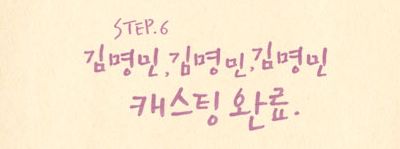 STEP.6
김명민, 김명민, 김명민
캐스팅 완료.